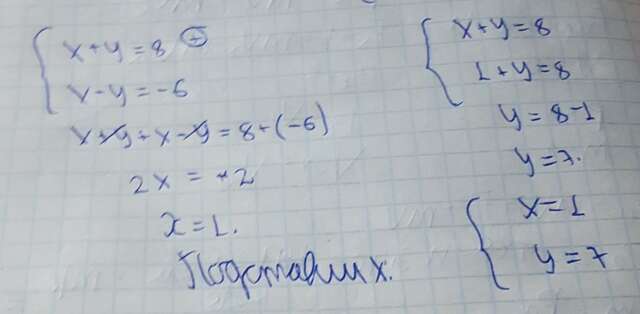 x+y=8 (+)
x-y=-6
x+y+x-y=8+(-6)
2x = +2
x=1.
Подставим x.
x+y=8
1+y=8
y=8-1
y=7.
x=1
y=7